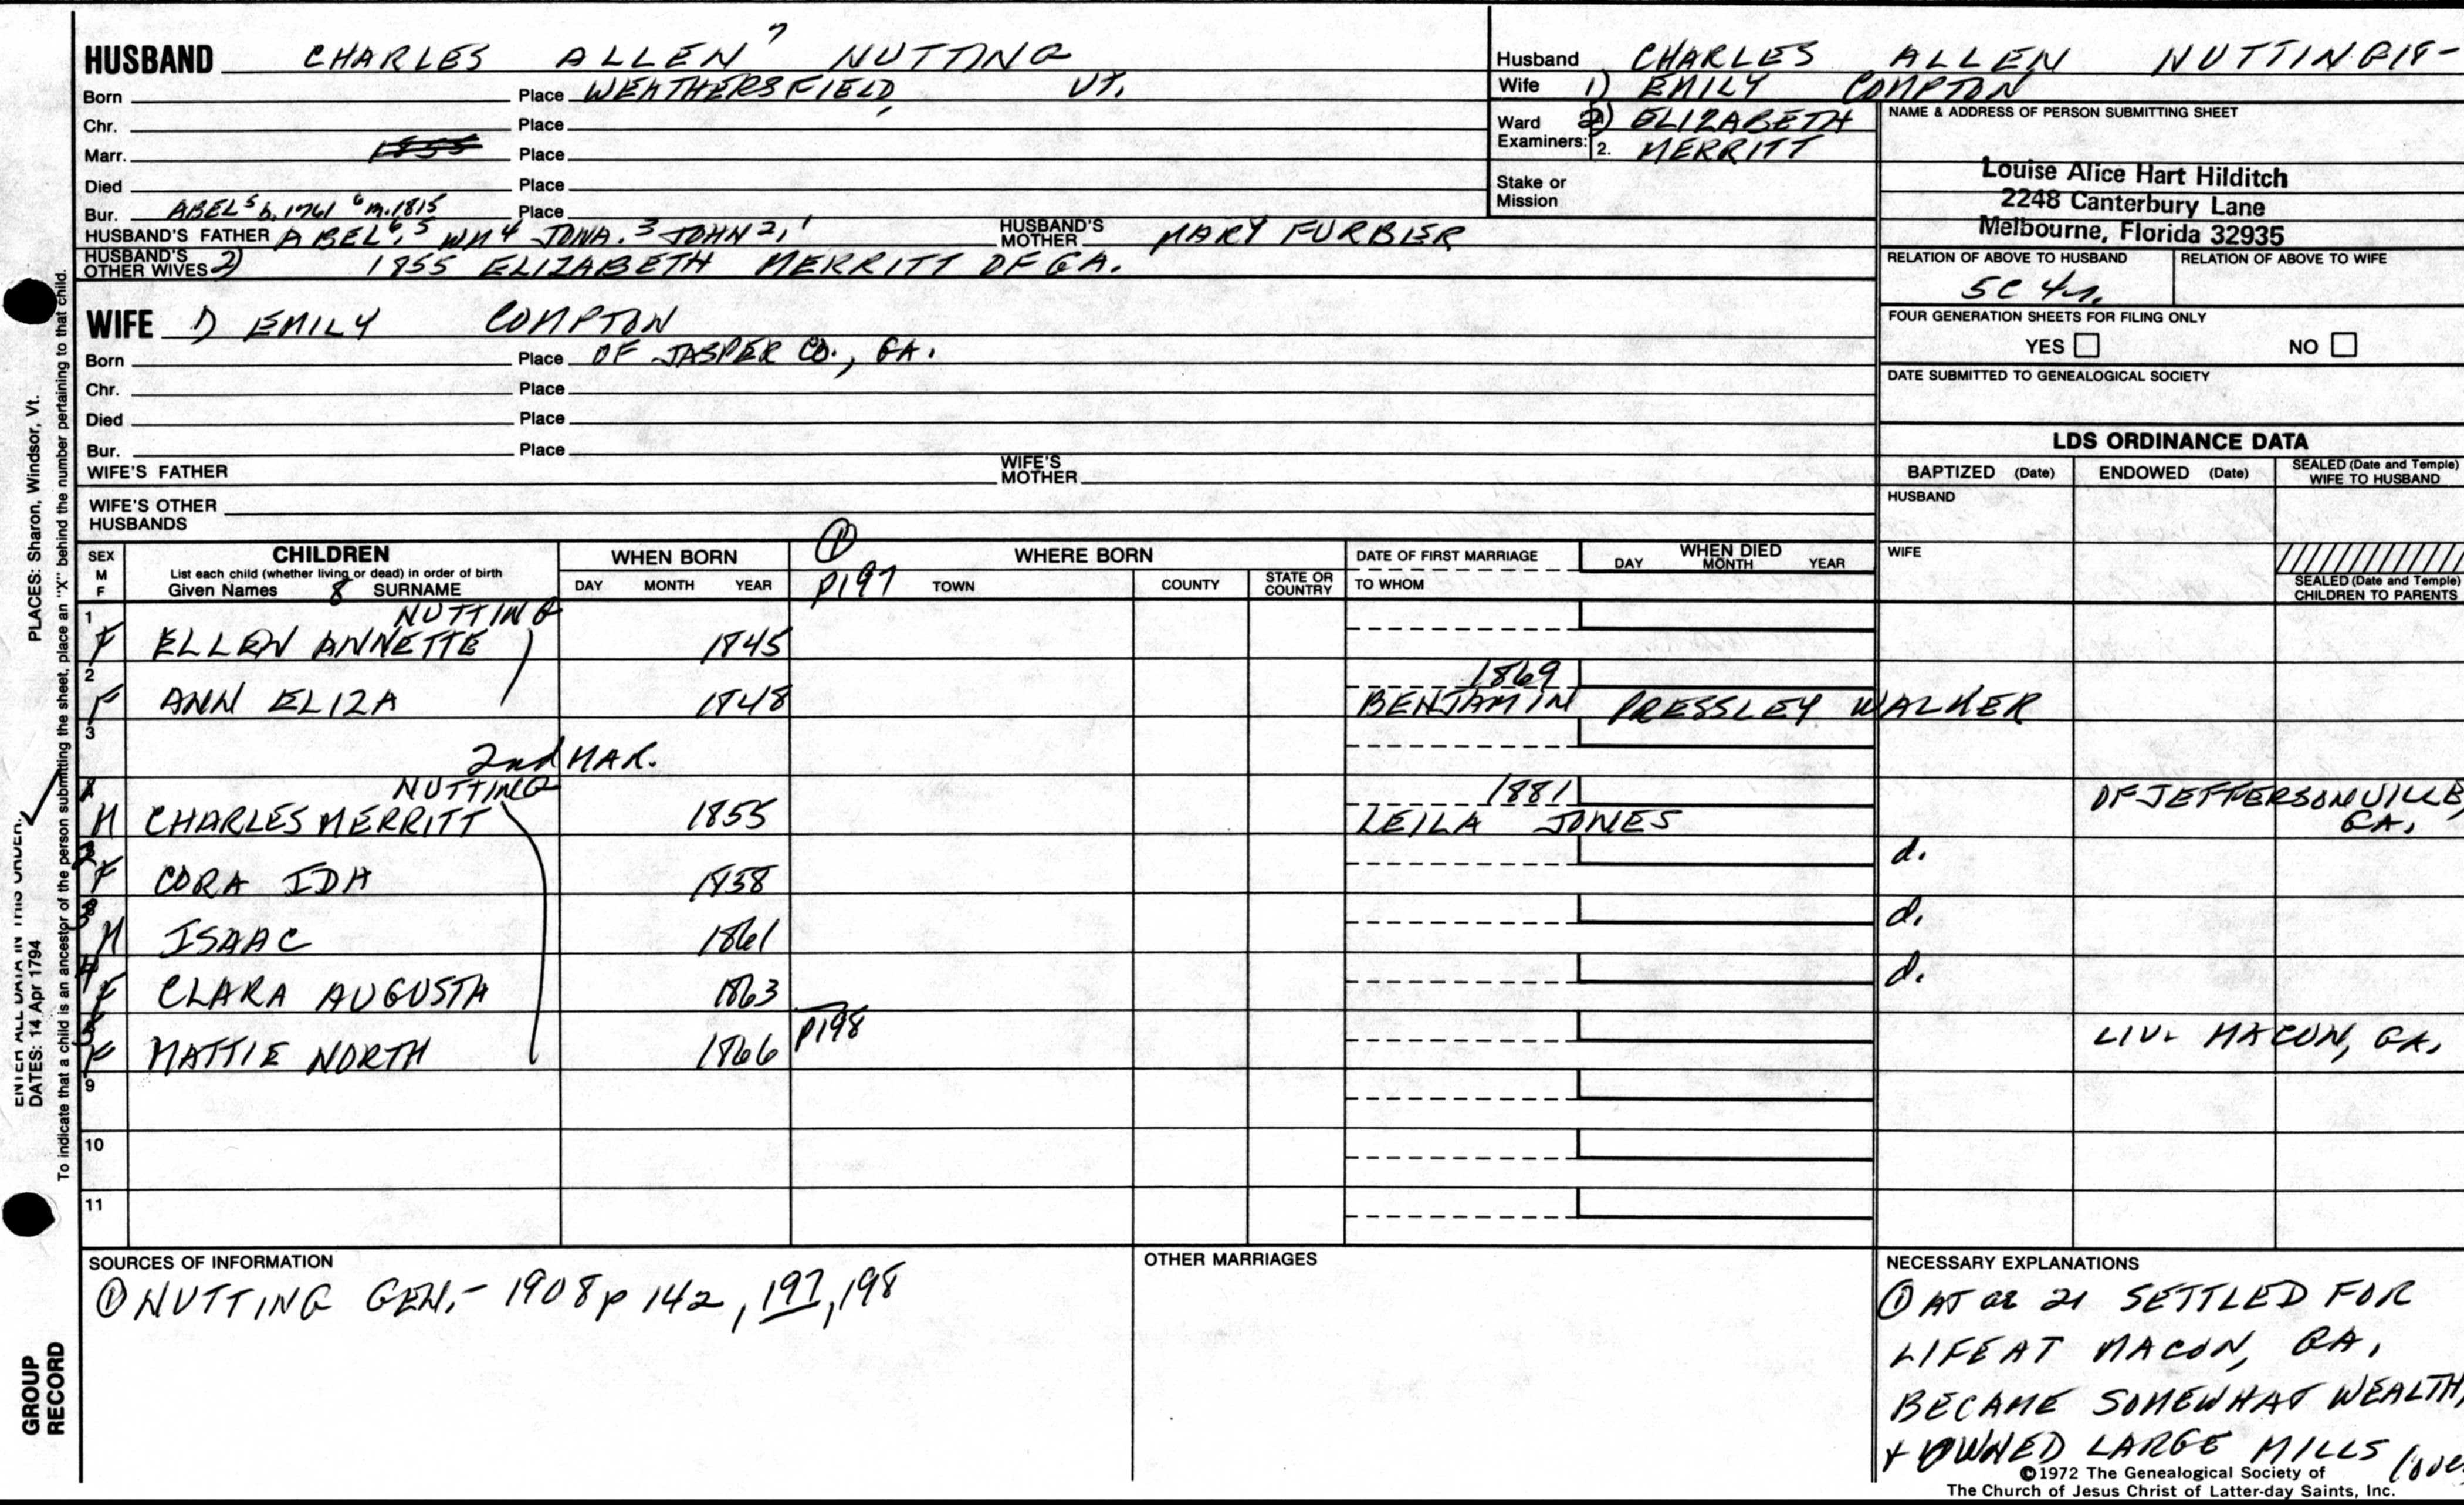 HUSBAND CHARLES ALLEN 7 NUTTING
Born Place WEATHERSFIELD, VT.
Chr. Place
Marr. 1855 Place
Died Place
Bur. ABEL 5 b. 1761 6 m. 1815 Place
HUSBAND'S FATHER ABEL 6, 5 WM 4 JONA. 3 JOHN 2, 1 HUSBAND'S MOTHER MARY FURBIER
HUSBAND'S OTHER WIVES 2) 1855 ELIZABETH MERRITT OF GA.
WIFE 1) EMILY COMPTON
Born Place OF JASPER CO., GA.
Chr. Place
Died Place
Bur. Place
WIFE'S FATHER WIFE'S MOTHER
WIFE'S OTHER HUSBANDS
Husband CHARLES ALLEN NUTTING 18-
Wife 1) EMILY COMPTON
Ward 2) ELIZABETH
Examiners: 2. MERRITT
Stake or
Mission
NAME & ADDRESS OF PERSON SUBMITTING SHEET
Louise Alice Hart Hilditch
2248 Canterbury Lane
Melbourne, Florida 32935
RELATION OF ABOVE TO HUSBAND RELATION OF ABOVE TO WIFE
5C 4r.
FOUR GENERATION SHEETS FOR FILING ONLY
YES NO
DATE SUBMITTED TO GENEALOGICAL SOCIETY
LDS ORDINANCE DATA
BAPTIZED (Date) ENDOWED (Date) SEALED (Date and Temple) WIFE TO HUSBAND
HUSBAND
WIFE
SEALED (Date and Temple) CHILDREN TO PARENTS
SEX M F CHILDREN WHEN BORN ① WHERE BORN DATE OF FIRST MARRIAGE WHEN DIED
List each child (whether living or dead) in order of birth
Given Names 8 SURNAME DAY MONTH YEAR p197 TOWN COUNTY STATE OR COUNTRY TO WHOM DAY MONTH YEAR
1 NUTTING
F ELLEN ANNETTE 1845
2 1869
F ANN ELIZA 1848 BENJAMIN PRESSLEY WALKER
3
2nd MAR.
1 NUTTING 1881 OF JEFFERSONVILLE,
M CHARLES MERRITT 1855 LEILA JONES GA.
2 d.
F CORA IDA 1858
3 d.
M ISAAC 1861
4 d.
F CLARA AUGUSTA 1863
5 p198
F MATTIE NORTH 1866 LIV. MACON, GA.
9
10
11
SOURCES OF INFORMATION
① NUTTING GEN. - 1908 p 142, 197, 198
OTHER MARRIAGES
NECESSARY EXPLANATIONS
① AT ae 21 SETTLED FOR
LIFE AT MACON, GA.
BECAME SOMEWHAT WEALTHY
+ OWNED LARGE MILLS (over
©1972 The Genealogical Society of
The Church of Jesus Christ of Latter-day Saints, Inc.
PLACES: Sharon, Windsor, Vt.
To indicate that a child is an ancestor of the person submitting the sheet, place an "X" behind the number pertaining to that child.
ENTER ALL DATA IN THIS ORDER:
DATES: 14 Apr 1794
GROUP
RECORD